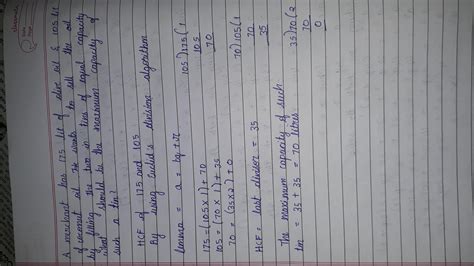 A merchant has 175 lit of olive oil & 105 lit
of coconut oil. He wants to sell the oil
by filling the two in tins of equal capacity
what should be the maximum capacity of
such a tin?
HCF of 175 and 105
By using Euclid's division algorithm
= a = bq + r
175 = (105 × 1) + 70
105 = (70 × 1) + 35
70 = (35 × 2) + 0
HCF = last divisor = 35
The maximum capacity of such
tin = 35 + 35 = 70 litres
105)175(1
105
70
70)105(1
70
35
35)70(2
70
0